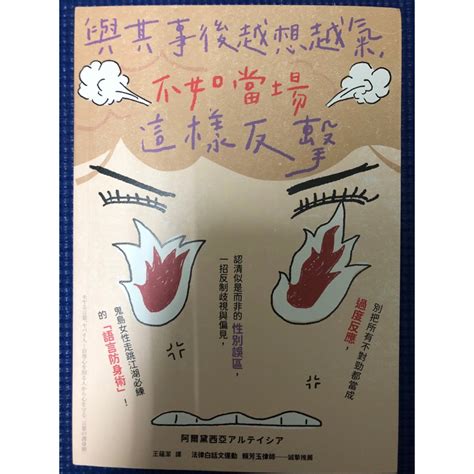 與其事後越想越氣,
不如當場
這樣反擊
別把所有不對勁都當成
過度反應,
認清似是而非的性別誤區,
一招反制歧視與偏見,
鬼島女性走跳江湖必練
的「語言防身術」!
阿爾黛西亞アルテイシア
王蘊潔 譯 法律白話文運動 賴芳玉律師——誠摯推薦